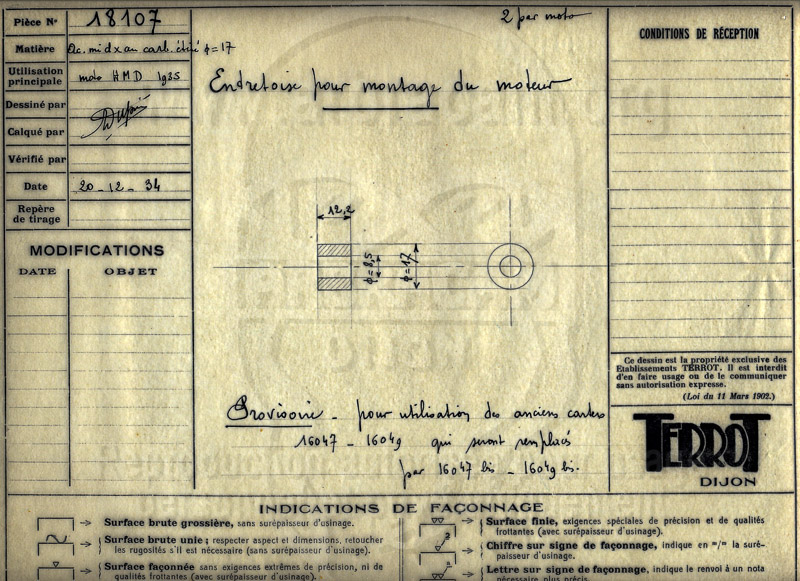 Pièce No 18107
2 par moto
Matière Ac. mi dx au carb. étiré ϕ=17
Utilisation principale moto HMD 1935
Dessiné par
Calqué par
Vérifié par
Date 20-12-34
Repère de tirage
MODIFICATIONS
DATE OBJET
Entretoise pour montage du moteur
12,2
ϕ=8,5
ϕ=17
Provisoire - pour utilisation des anciens carters
16047 - 16049 qui seront remplacés
par 16047 bis - 16049 bis.
CONDITIONS DE RÉCEPTION
Ce dessin est la propriété exclusive des
Etablissements TERROT. Il est interdit
d'en faire usage ou de le communiquer
sans autorisation expresse.
(Loi du 11 Mars 1902.)
TERROT
DIJON
INDICATIONS DE FAÇONNAGE
Surface brute grossière, sans surépaisseur d'usinage.
Surface brute unie ; respecter aspect et dimensions, retoucher
les rugosités s'il est nécessaire (sans surépaisseur d'usinage).
Surface façonnée sans exigences extrêmes de précision, ni de
qualités frottantes (avec surépaisseur d'usinage).
Surface finie, exigences spéciales de précision et de qualités
frottantes (avec surépaisseur d'usinage).
Chiffre sur signe de façonnage, indique en m/m la suré-
paisseur d'usinage.
Lettre sur signe de façonnage, indique le renvoi à un nota
nécessaire plus précis.